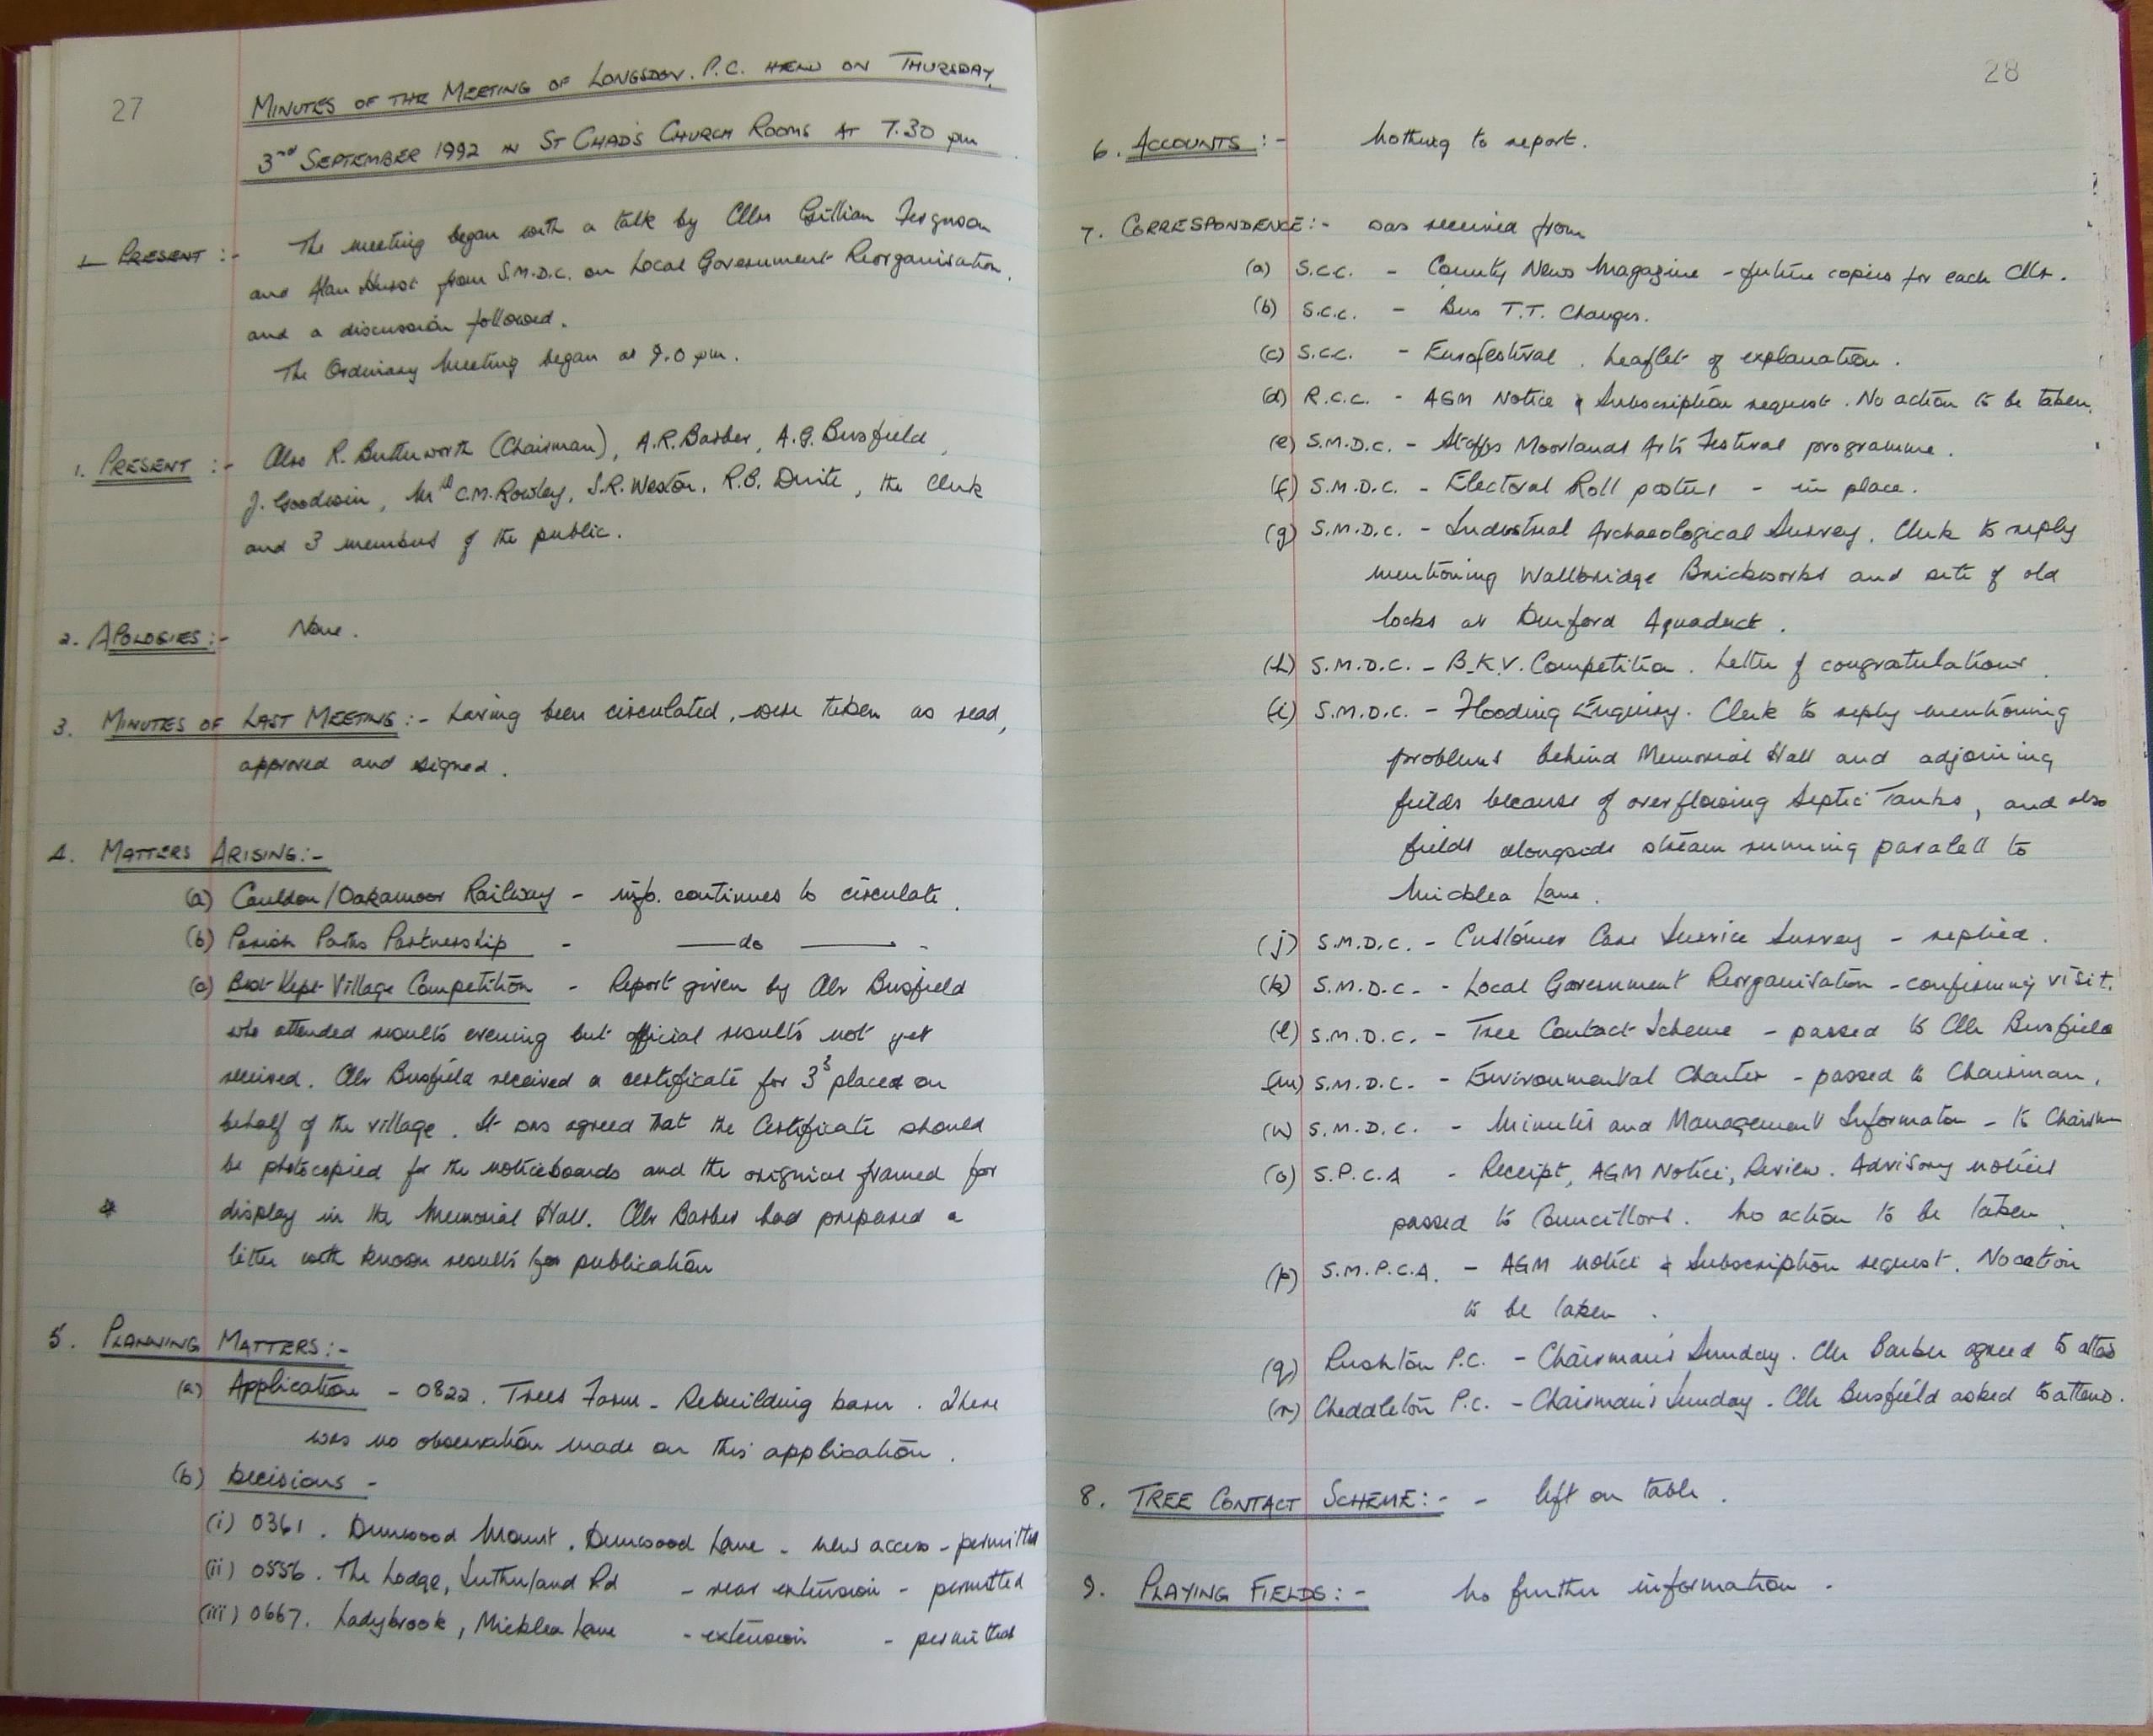 27
MINUTES OF THE MEETING OF LONGSDON. P.C. HELD ON THURSDAY,
3rd SEPTEMBER 1992 IN ST CHAD'S CHURCH ROOMS AT 7.30 pm
1. PRESENT :- The meeting began with a talk by Cllrs Gillian Ferguson
and Alan Hurst from S.M.D.C. on Local Government Reorganisation,
and a discussion followed.
The Ordinary Meeting began at 9.0 pm.
1. PRESENT :- Also R. Butterworth (Chairman), A.R. Barber, A.G. Busfield,
J. Goodwin, Mrs C.M. Rowley, S.R. Weston, R.B. the Clerk
and 3 members of the public.
2. APOLOGIES :- None.
3. MINUTES OF LAST MEETING :- Having been circulated, were taken as read,
approved and signed.
4. MATTERS ARISING :-
(a) Cauldon/Oakamoor Railway - info. continues to circulate.
(b) Parish Paths Partnership - —do—
(c) Best Kept Village Competition - Report given by Cllr Busfield
who attended results evening but official results not yet
received. Cllr Busfield received a certificate for 3rd placed on
behalf of the village. It was agreed that the Certificate should
be photocopied for the noticeboards and the original framed for
* display in the Memorial Hall. Cllr Barber had prepared a
letter with known results for publication
5. PLANNING MATTERS :-
(a) Application - 0822. Trees Farm - Rebuilding barn. There
was no observation made on this application.
(b) Decisions -
(i) 0361. Dunwood Mount, Dunwood Lane - new access - permitted
(ii) 0556. The Lodge, Sutherland Rd - rear extension - permitted
(iii) 0667. Ladybrook, Micklea Lane - extension - permitted
28
6. ACCOUNTS :- Nothing to report.
7. CORRESPONDENCE :- was received from
(a) S.C.C. - County News Magazine - future copies for each Cllr.
(b) S.C.C. - Bus T.T. Changes.
(c) S.C.C. - Eurofestival. Leaflet of explanation.
(d) R.C.C. - AGM Notice & Subscription request. No action to be taken.
(e) S.M.D.C. - Staffs Moorlands Arts Festival programme.
(f) S.M.D.C. - Electoral Roll posters - in place.
(g) S.M.D.C. - Industrial Archaeological Survey. Clerk to reply
mentioning Wallbridge Brickworks and site of old
locks at Denford Aquaduct.
(h) S.M.D.C. - B.K.V. Competition. Letter of congratulations.
(i) S.M.D.C. - Flooding Enquiry. Clerk to reply mentioning
problems behind Memorial Hall and adjoining
fields because of overflowing Septic Tanks, and also
fields alongside stream running paralell to
Micklea Lane.
(j) S.M.D.C. - Customer Care Service Survey - replied.
(k) S.M.D.C. - Local Government Reorganisation - confirming visit.
(l) S.M.D.C. - Tree Contact Scheme - passed to Cllr Busfield
(m) S.M.D.C. - Environmental Charter - passed to Chairman.
(n) S.M.D.C. - Minutes and Management Informaton - to Chairman
(o) S.P.C.A - Receipt, AGM Notice, Review. Advisory notices
passed to Councillors. No action to be taken.
(p) S.M.P.C.A. - AGM notice & Subscription request. No action
to be taken.
(q) Rushton P.C. - Chairman's Sunday. Cllr Barber agreed to attend
(r) Cheddleton P.C. - Chairman's Sunday. Cllr Busfield asked to attend.
8. TREE CONTACT SCHEME :- - left on table.
9. PLAYING FIELDS :- No further information.